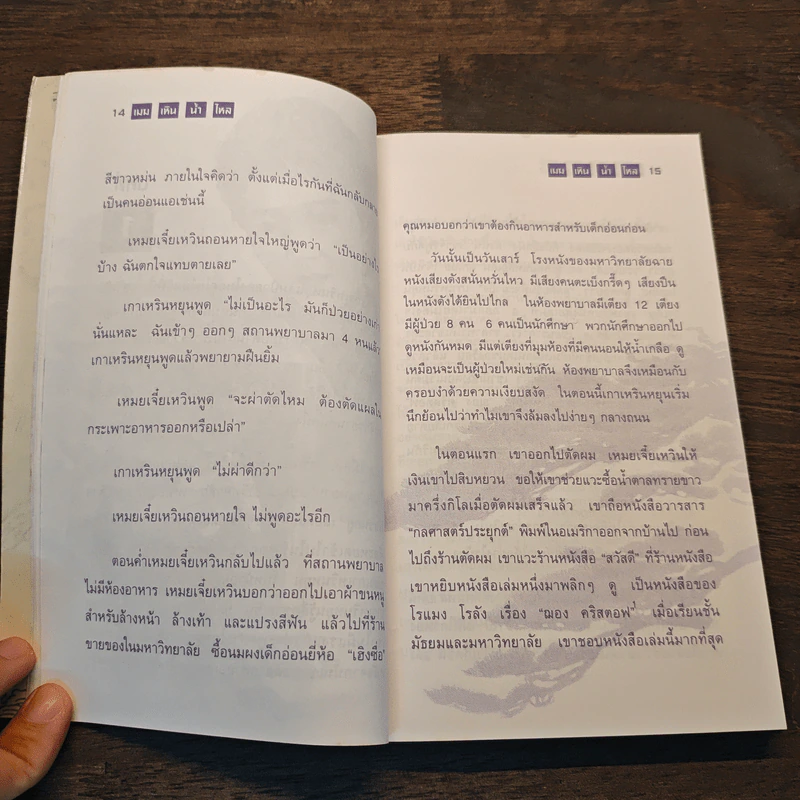 14 เมฆ เหิน น้ำ ไหล
สีขาวหม่น ภายในใจคิดว่า ตั้งแต่เมื่อไรกันที่ฉันกลับกลาย
เป็นคนอ่อนแอเช่นนี้
เหมยเจี๋ยเหวินถอนหายใจใหญ่พูดว่า “เป็นอย่างไร
บ้าง ฉันตกใจแทบตายเลย”
เกาเหรินหยุนพูด “ไม่เป็นอะไร มันก็ป่วยอย่างเก่า
นั่นแหละ ฉันเข้าๆ ออกๆ สถานพยาบาลมา 4 หนแล้ว”
เกาเหรินหยุนพูดแล้วพยายามฝืนยิ้ม
เหมยเจี๋ยเหวินพูด “จะผ่าตัดไหม ต้องตัดแผลใน
กระเพาะอาหารออกหรือเปล่า”
เกาเหรินหยุนพูด “ไม่ผ่าดีกว่า”
เหมยเจี๋ยเหวินถอนหายใจ ไม่พูดอะไรอีก
ตอนค่ำเหมยเจี๋ยเหวินกลับไปแล้ว ที่สถานพยาบาล
ไม่มีห้องอาหาร เหมยเจี๋ยเหวินบอกว่าออกไปเอาผ้าขนหนู
สำหรับล้างหน้า ล้างเท้า และแปรงสีฟัน แล้วไปที่ร้าน
ขายของในมหาวิทยาลัย ซื้อนมผงเด็กอ่อนยี่ห้อ “เฮิงซื่อ”
เมฆ เหิน น้ำ ไหล 15
คุณหมอบอกว่าเขาต้องกินอาหารสำหรับเด็กอ่อนก่อน
วันนั้นเป็นวันเสาร์ โรงหนังของมหาวิทยาลัยฉาย
หนังเสียงดังสนั่นหวั่นไหว มีเสียงคนตะเบ็งกรี๊ดๆ เสียงปืน
ในหนังดังได้ยินไปไกล ในห้องพยาบาลมีเตียง 12 เตียง
มีผู้ป่วย 8 คน 6 คนเป็นนักศึกษา พวกนักศึกษาออกไป
ดูหนังกันหมด มีแต่เตียงที่มุมห้องที่มีคนนอนให้น้ำเกลือ ดู
เหมือนจะเป็นผู้ป่วยใหม่เช่นกัน ห้องพยาบาลจึงเหมือนกับ
ครอบงำด้วยความเงียบสงัด ในตอนนี้เกาเหรินหยุนเริ่ม
นึกย้อนไปว่าทำไมเขาจึงล้มลงไปง่ายๆ กลางถนน
ในตอนแรก เขาออกไปตัดผม เหมยเจี๋ยเหวินให้
เงินเขาไปสิบหยวน ขอให้เขาช่วยแวะซื้อน้ำตาลทรายขาว
มาครึ่งกิโลเมื่อตัดผมเสร็จแล้ว เขาถือหนังสือวารสาร
“กลศาสตร์ประยุกต์” พิมพ์ในอเมริกาออกจากบ้านไป ก่อน
ไปถึงร้านตัดผม เขาแวะร้านหนังสือ “สวัสดี” ที่ร้านหนังสือ
เขาหยิบหนังสือเล่มหนึ่งมาพลิกๆ ดู เป็นหนังสือของ
โรแมง โรลัง เรื่อง “ฌอง คริสตอฟ” เมื่อเรียนชั้น
มัธยมและมหาวิทยาลัย เขาชอบหนังสือเล่มนี้มากที่สุด